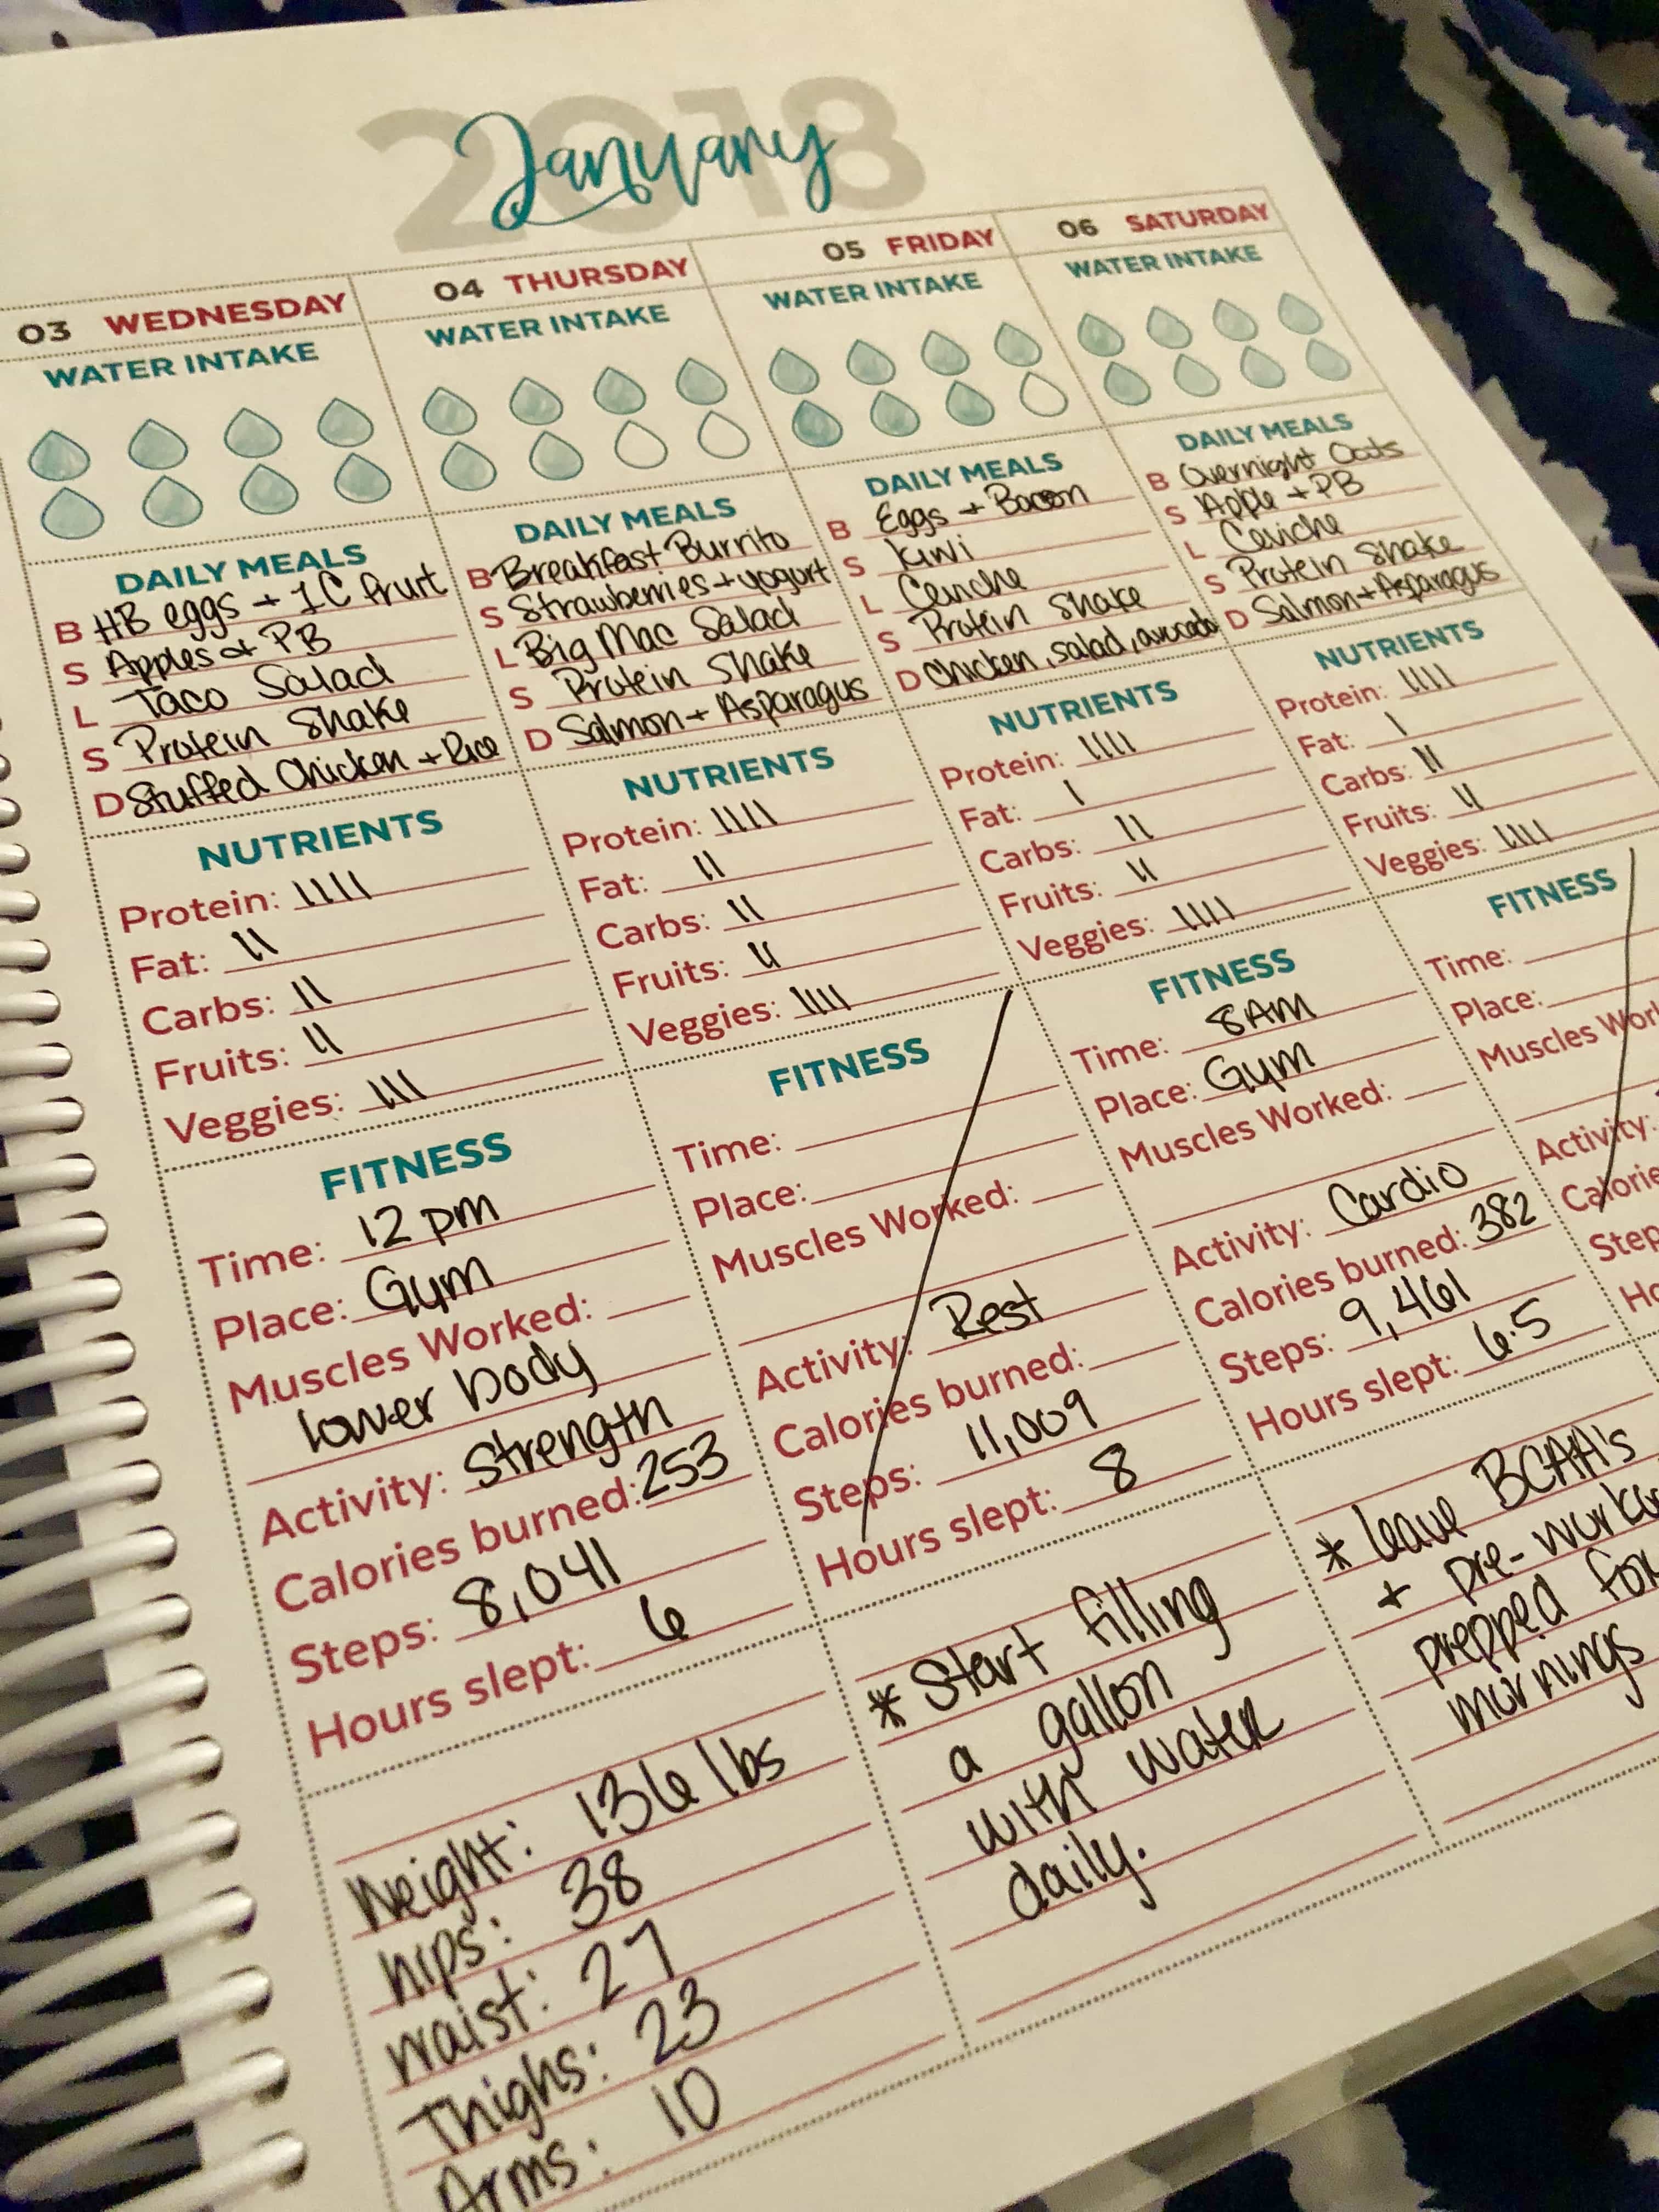 2018
January
03 WEDNESDAY
WATER INTAKE
DAILY MEALS
B HB eggs + 1C fruit
S Apples + PB
L Taco Salad
S Protein Shake
D Stuffed Chicken + Rice
NUTRIENTS
Protein: IIII
Fat: II
Carbs: II
Fruits: II
Veggies: III
FITNESS
Time: 12 pm
Place: Gym
Muscles Worked:
lower body
Activity: Strength
Calories burned: 253
Steps: 8,041
Hours slept: 6
Weight: 136 lbs
hips: 38
waist: 27
Thighs: 23
Arms: 10
04 THURSDAY
WATER INTAKE
DAILY MEALS
B Breakfast Burrito
S Strawberries + yogurt
L Big Mac Salad
S Protein Shake
D Salmon + Asparagus
NUTRIENTS
Protein: IIII
Fat: II
Carbs: II
Fruits: II
Veggies: IIII
FITNESS
Time:
Place:
Muscles Worked:
Activity: Rest
Calories burned:
Steps: 11,009
Hours slept: 8
* Start filling
a gallon
with water
daily.
05 FRIDAY
WATER INTAKE
DAILY MEALS
B Eggs + Bacon
S Kiwi
L Ceviche
S Protein Shake
D Chicken, salad, avucado
NUTRIENTS
Protein: IIII
Fat: I
Carbs: II
Fruits: II
Veggies: IIII
FITNESS
Time: 8AM
Place: Gym
Muscles Worked:
Activity: Cardio
Calories burned: 382
Steps: 9,461
Hours slept: 6.5
* leave BCAA's
+ pre-workou
prepped for
mornings
06 SATURDAY
WATER INTAKE
DAILY MEALS
B Overnight Oats
S Apple + PB
L Ceviche
S Protein Shake
D Salmon + Asparagus
NUTRIENTS
Protein: IIII
Fat: I
Carbs: II
Fruits: II
Veggies: IIII
FITNESS
Time:
Place:
Muscles Wor
Activity:
Calorie
Step
Ho